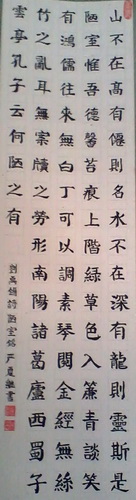 山不在高有僊則名水不在深有龍則靈斯是
陋室惟吾德馨苔痕上階綠草色入簾青談笑
有鴻儒往來無白丁可以調素琴閱金經無絲
竹之亂耳無案牘之勞形南陽諸葛廬西蜀子
雲亭孔子云何陋之有
劉禹錫詩陋室銘 書